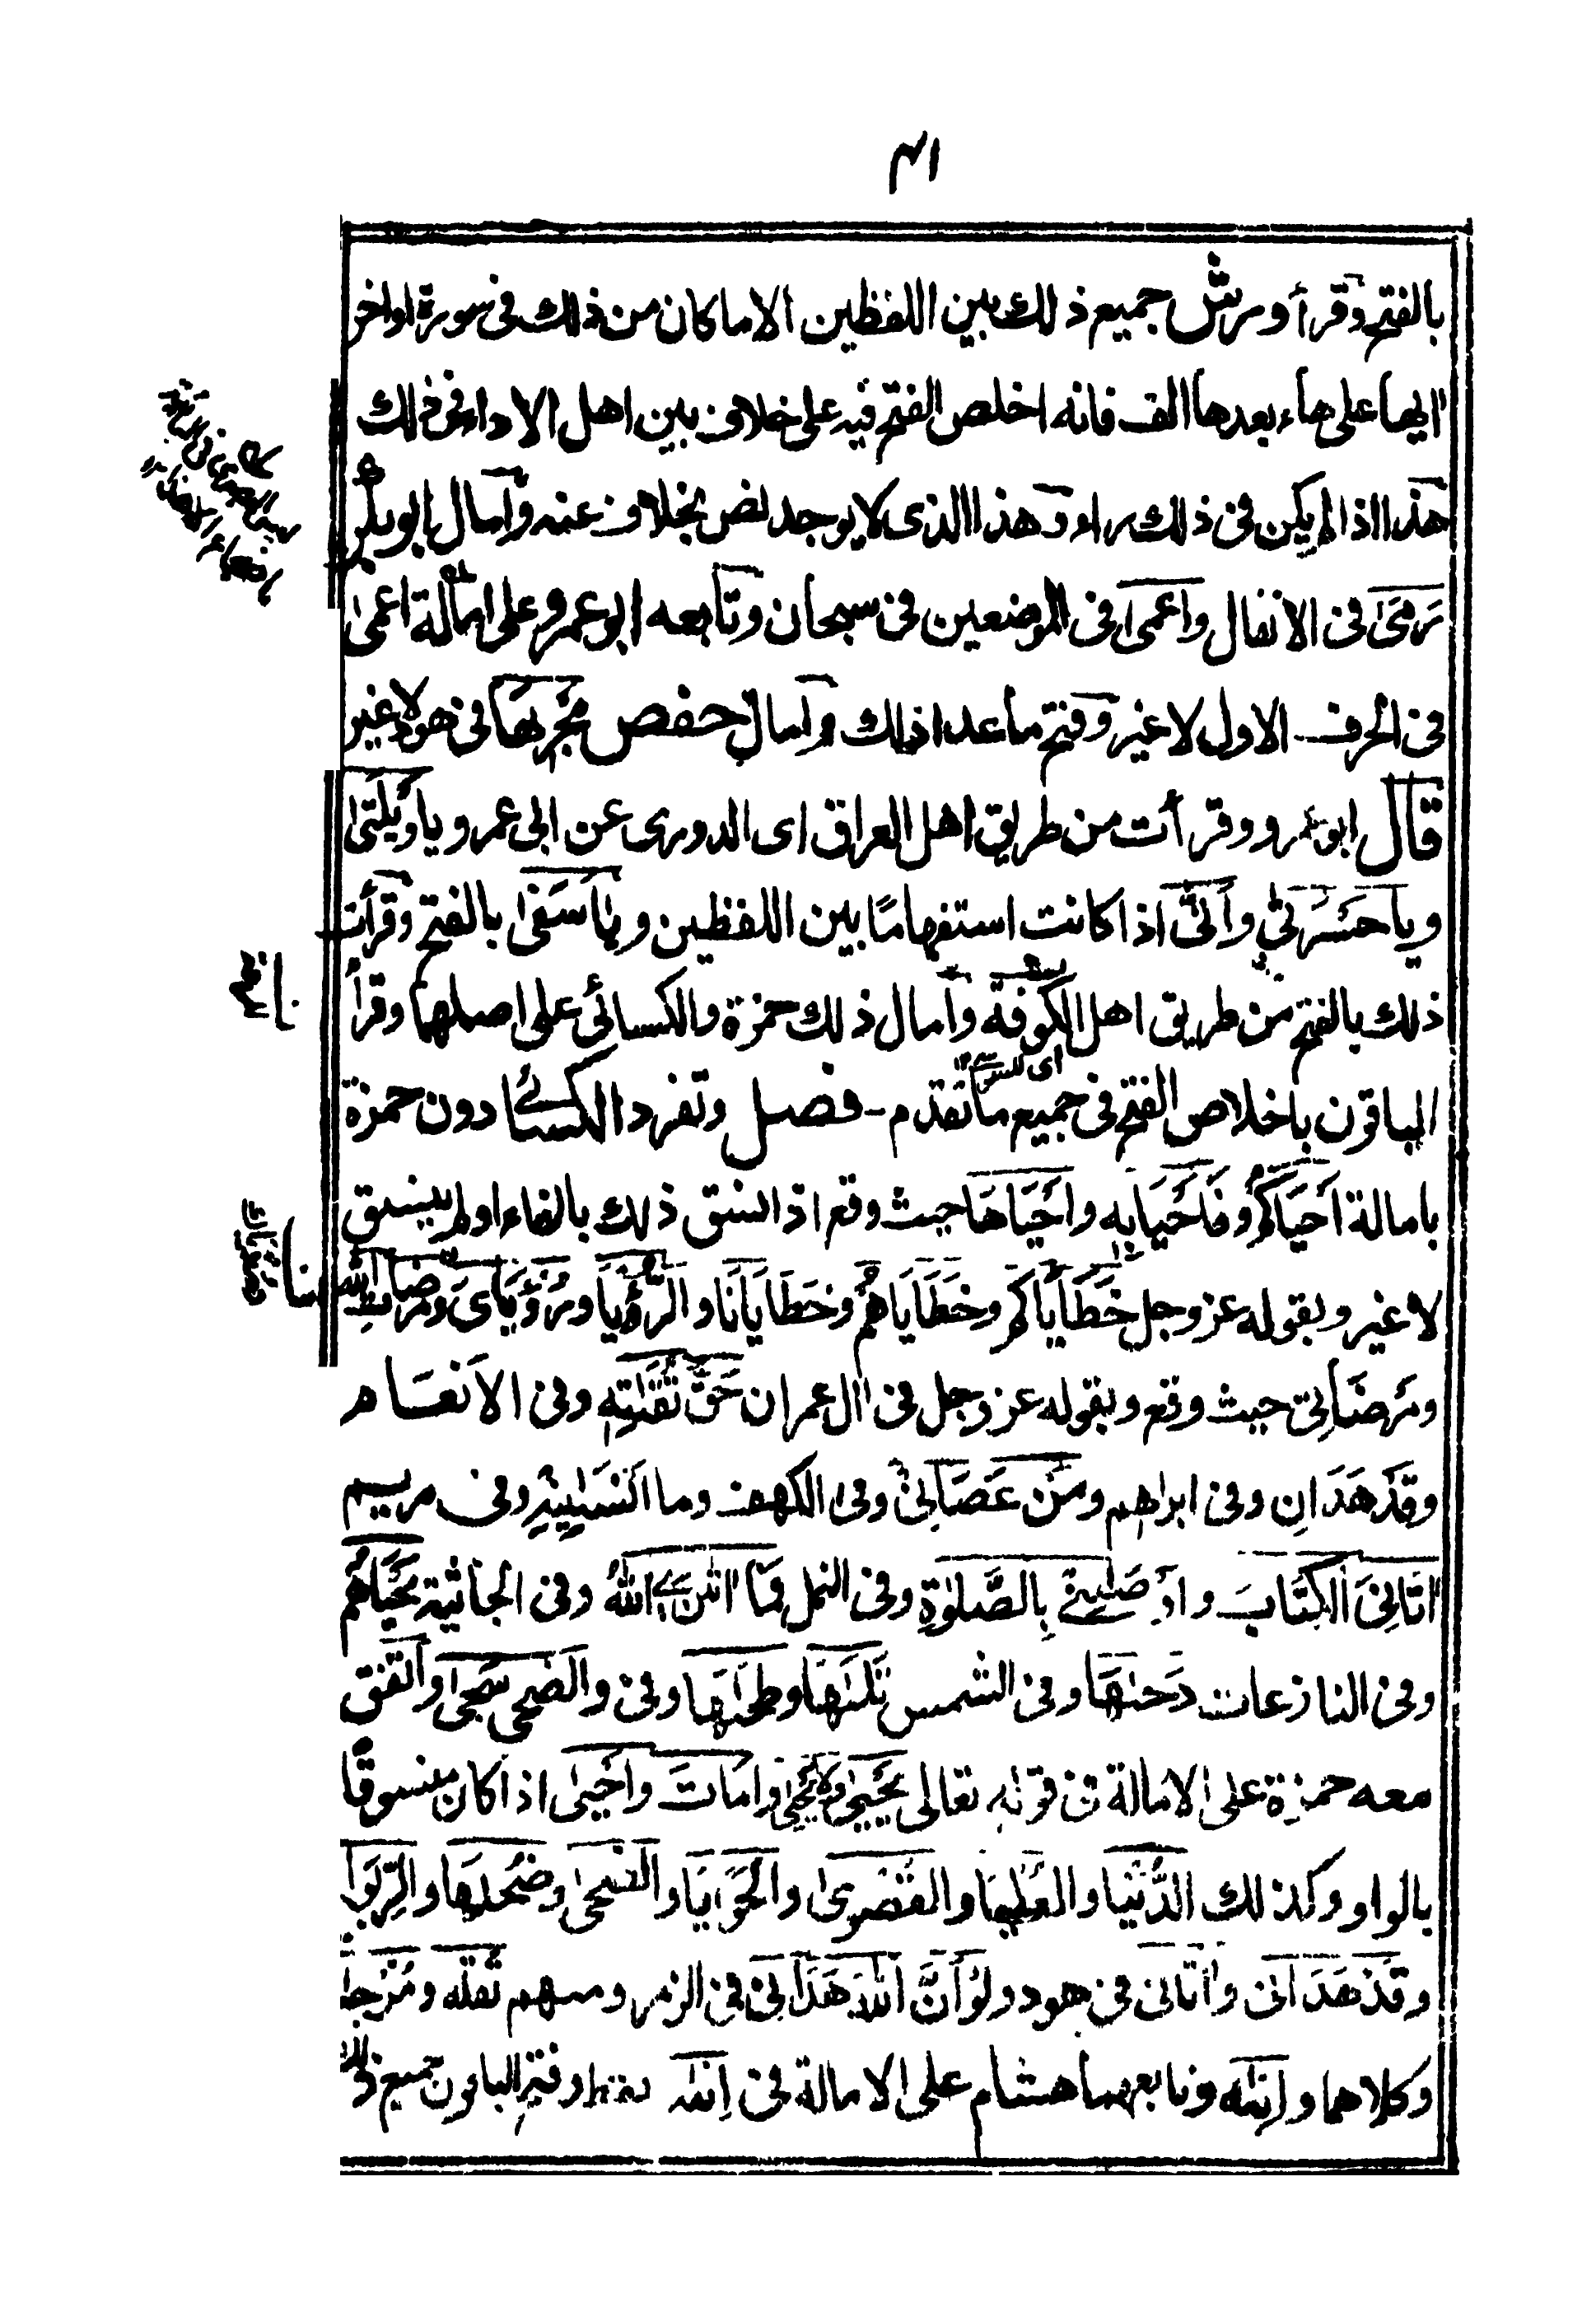 بالفتح وقرأ ورش جميع ذلك بين اللفظين الا ما كان من ذلك فى سورة اواخر
ايها على هاء بعدها الف فانه اخلص الفتح فيه على خلاف بين اهل الاداء فى ذلك
هذا اذا لم يكن فى ذلك راء وهذا الذى لا يوجد نص بخلاف عنه وامال ابو بكر
رَمَىٰ فى الانفال واعمىٰ فى الموضعين فى سبحان وتابعه ابو عمرو على امالة اعمىٰ
فى الحرف الاول لا غير وفتح ما عدا ذلك وامال حفص مَجْرٰىهَا فى هود لا غير
قال ابو عمرو وقرأت من طريق اهل العراق اى الدورى عن ابى عمرو ياوَيْلَتىٰ
وياحَسْرَتىٰ وأَنّىٰ اذا كانت استفهامًا بين اللفظين ويٰاَسَفىٰ بالفتح وقرأت
ذلك بالفتح من طريق اهل الكوفة وامال ذلك حمزة والكسائى على اصلهما وقرأ
الباقون باخلاص الفتح فى جميع ما تقدم - فصل وتفرد الكسائى دون حمزة
بامالة اَحْيَاكُم وفَاَحْيَا بِهِ واَحْيَاهَا حيث وقع اذا نسق ذلك بالفاء او لم ينسق
لا غير وبقوله عز وجل خَطَايَاكُم وخَطَايَاهُم وخَطَايَانَا والرُّؤْيَا ورُؤْيَاىَ ومَرْضَاتِ اللّٰه
ومَرْضَاتِى حيث وقع وبقوله عز وجل فى اٰل عمران حَقَّ تُقَاتِهِ وفى الاَنْعَام
وقَدْ هَدَانِ وفى ابراهيم ومَنْ عَصَانِىْ وفى الكهف وما اَنْسَانِيهِ وفى مريم
اٰتَانِىَ الْكِتَابَ واَوْصَانِىْ بِالصَّلٰوةِ وفى النمل فَمَا اٰتٰنِ ےَ اللّٰهُ وفى الجاثية مَحْيَاهُم
وفى النازعات دَحٰهَا وفى الشمس تَلٰىهَا وطَحٰىهَا وفى والضحى سَجىٰ واتفق
معه حمزة على الامالة فى قوله تعالى يَحْيىٰ ولا يَحْيىٰ واَمَاتَ واَحْيىٰ اذا كان منسوقًا
بالواو وكذلك الدُّنْيَا والعُلْيَا والقُصْوىٰ والحَوَايَا والضُّحىٰ وضُحٰهَا والرِّبَوا
وقَدْ هَدَانى واٰتَانى فى هود ولَوْ اَنَّ اللّٰهَ هَدَانِىْ فى الزمر ومنهم تُقٰة ومُزْجٰة
وكلاهما واِنٰه وتابعهما هشام على الامالة فى اِنٰه فقط وفتح الباقون جميع ذلك